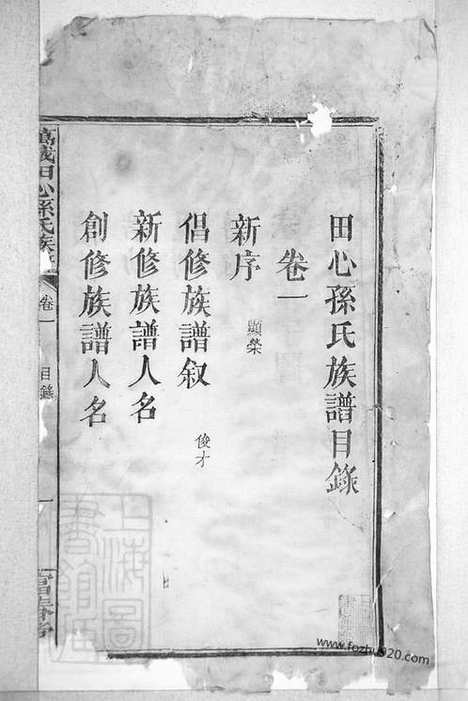 田心孫氏族譜目錄
卷一
新序 顯榮
倡修族譜叙 俊才
新修族譜人名
創修族譜人名
萬載田心孫氏族譜 卷一 目錄 一 富春堂
上海圖書館藏
www.fozhu920.com